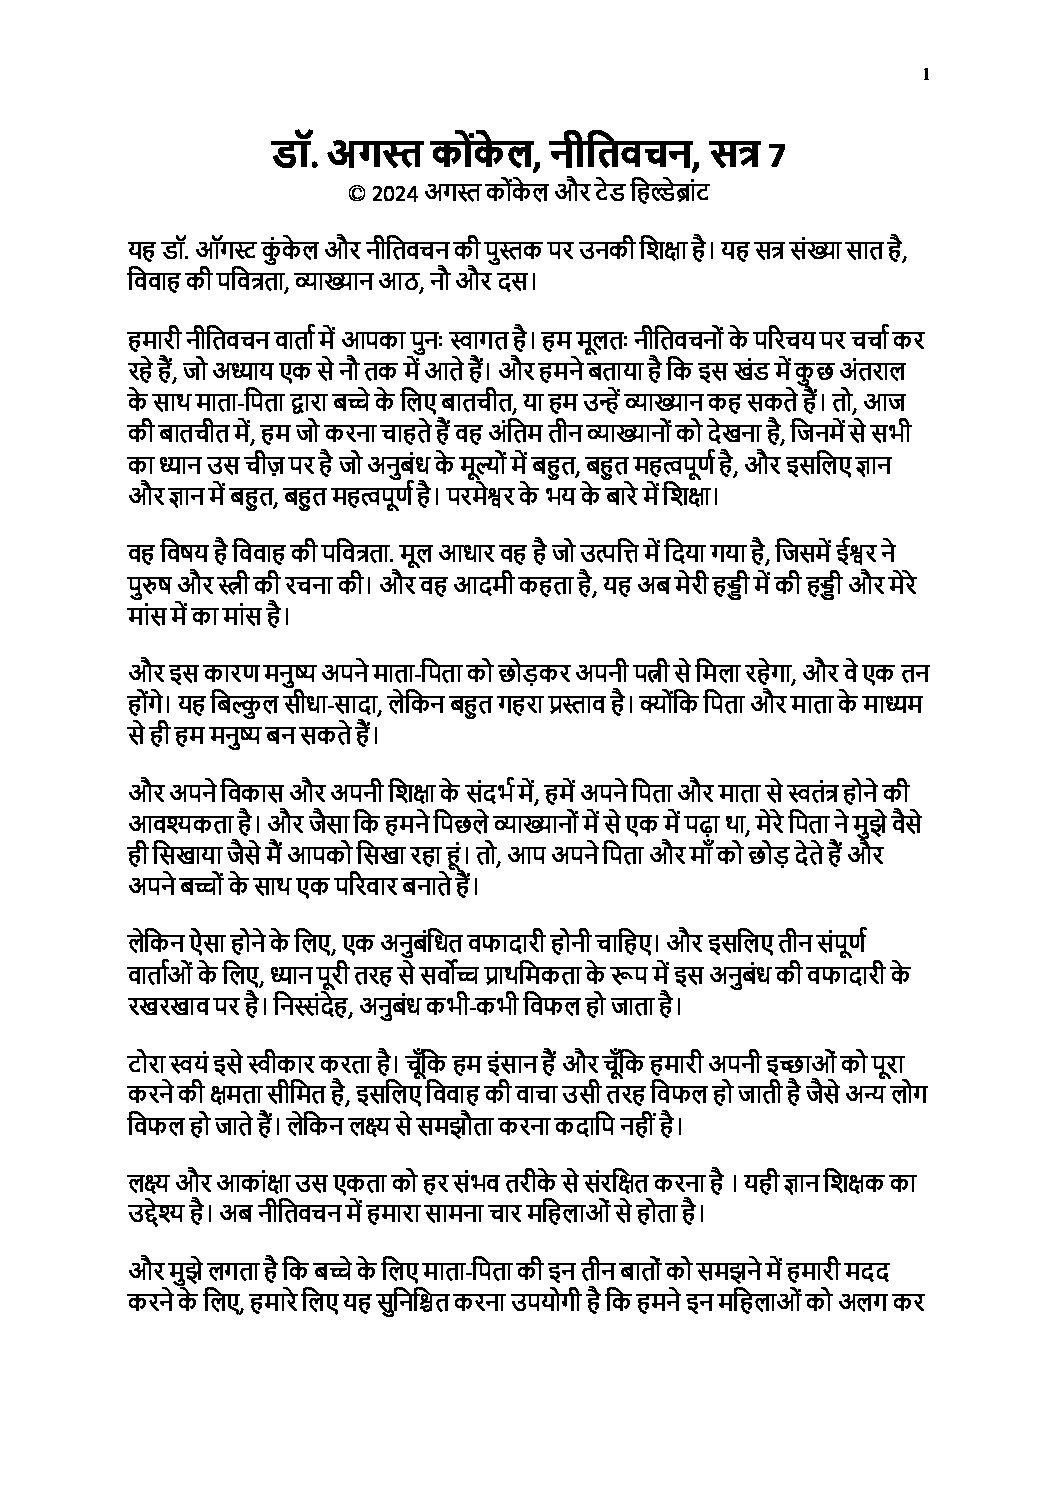 1
डॉ. अगस्त कोंकेल, नीतिवचन, सत्र 7
© 2024 अगस्त कोंकेल और टेड हिल्डेब्रांट
यह डॉ. ऑगस्ट कुंकेल और नीतिवचन की पुस्तक पर उनकी शिक्षा है। यह सत्र संख्या सात है,
विवाह की पवित्रता, व्याख्यान आठ, नौ और दस।
हमारी नीतिवचन वार्ता में आपका पुनः स्वागत है। हम मूलतः नीतिवचनों के परिचय पर चर्चा कर
रहे हैं, जो अध्याय एक से नौ तक में आते हैं। और हमने बताया है कि इस खंड में कुछ अंतराल
के साथ माता-पिता द्वारा बच्चे के लिए बातचीत, या हम उन्हें व्याख्यान कह सकते हैं। तो, आज
की बातचीत में, हम जो करना चाहते हैं वह अंतिम तीन व्याख्यानों को देखना है, जिनमें से सभी
का ध्यान उस चीज़ पर है जो अनुबंध के मूल्यों में बहुत, बहुत महत्वपूर्ण है, और इसलिए ज्ञान
और ज्ञान में बहुत, बहुत महत्वपूर्ण है। परमेश्वर के भय के बारे में शिक्षा।
वह विषय है विवाह की पवित्रता. मूल आधार वह है जो उत्पत्ति में दिया गया है, जिसमें ईश्वर ने
पुरुष और स्त्री की रचना की। और वह आदमी कहता है, यह अब मेरी हड्डी में की हड्डी और मेरे
मांस में का मांस है।
और इस कारण मनुष्य अपने माता-पिता को छोड़कर अपनी पत्नी से मिला रहेगा, और वे एक तन
होंगे। यह बिल्कुल सीधा-सादा, लेकिन बहुत गहरा प्रस्ताव है। क्योंकि पिता और माता के माध्यम
से ही हम मनुष्य बन सकते हैं।
और अपने विकास और अपनी शिक्षा के संदर्भ में, हमें अपने पिता और माता से स्वतंत्र होने की
आवश्यकता है। और जैसा कि हमने पिछले व्याख्यानों में से एक में पढ़ा था, मेरे पिता ने मुझे वैसे
ही सिखाया जैसे मैं आपको सिखा रहा हूं। तो, आप अपने पिता और माँ को छोड़ देते हैं और
अपने बच्चों के साथ एक परिवार बनाते हैं।
लेकिन ऐसा होने के लिए, एक अनुबंधित वफादारी होनी चाहिए। और इसलिए तीन संपूर्ण
वार्ताओं के लिए, ध्यान पूरी तरह से सर्वोच्च प्राथमिकता के रूप में इस अनुबंध की वफादारी के
रखरखाव पर है। निस्संदेह, अनुबंध कभी-कभी विफल हो जाता है।
टोरा स्वयं इसे स्वीकार करता है। चूँकि हम इंसान हैं और चूँकि हमारी अपनी इच्छाओं को पूरा
करने की क्षमता सीमित है, इसलिए विवाह की वाचा उसी तरह विफल हो जाती है जैसे अन्य लोग
विफल हो जाते हैं। लेकिन लक्ष्य से समझौता करना कदापि नहीं है।
लक्ष्य और आकांक्षा उस एकता को हर संभव तरीके से संरक्षित करना है । यही ज्ञान शिक्षक का
उद्देश्य है। अब नीतिवचन में हमारा सामना चार महिलाओं से होता है।
और मुझे लगता है कि बच्चे के लिए माता-पिता की इन तीन बातों को समझने में हमारी मदद
करने के लिए, हमारे लिए यह सुनिश्चित करना उपयोगी है कि हमने इन महिलाओं को अलग कर